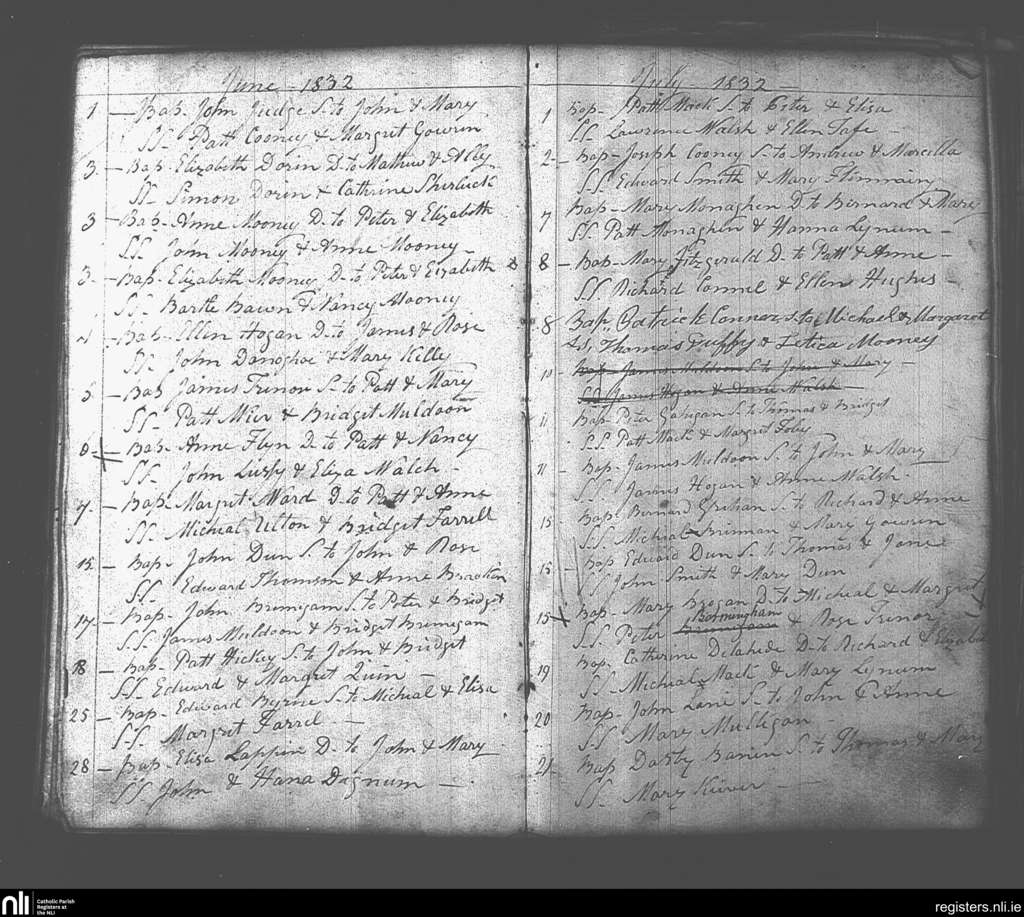 June 1832
1 — Bap. John Judge S. to John & Mary
SS. Patt Cooney & Margrit Gowrin
3 — Bap. Elizabeth Dorin D. to Mathew & Ally
SS. Simon Dorin & Cathrine Shirluck
3 — Bap. Anne Mooney D. to Peter & Elizabeth
SS. John Mooney & Anne Mooney —
3 — Bap. Elizabeth Mooney D. to Peter & Elizabeth
SS. Bartle Bawn & Nancy Mooney
4 — Bap. Ellen Hogan D. to James & Rose
SS. John Donoghoe & Mary Kelly
5 — Bap James Trinor S. to Patt & Mary
SS. Patt & Bridgit Muldoon
— Bap. Anne Flyn D. to Patt & Nancy
SS. John & Eliza Walch —
7 — Bap. Margrit Ward D. to Patt & Anne
SS. Michial & Bridgit Farrell
15 — Bap. John Dun S. to John & Rose
SS. Edward Thomson & Anne Bracken
17 — Bap. John Brimigam S. to Peter & Bridgit
S.S. James Muldoon & Bridgit Brimigam
18 — Bap. Patt Hickey S. to John & Bridgit
SS. Edward & Margret Quin —
25 — Bap. Edward Byrne S. to Michial & Elisa
SS. Margrit Farrel —
28 — Bap. Elisa Lappin D. to John & Mary
SS John & Hana Dignum —
July 1832
1 Bap. Patt Mack S. to Peter & Elisa
SS. Lawrence Walsh & Ellen Tafe —
2 — Bap. Joseph Cooney S. to Andrew & Marcella
SS. Edward Smith & Mary
7 Bap. Mary Monaghen D. to Bernard & Mary
SS. Patt Monaghen & Hanna Lynum —
8 — Bap. Mary Fitzgerald D. to Patt & Anne —
SS. Richard Connel & Ellen Hughes —
8 Bap. Patrick Connor S. to Michael & Margaret
SS. Thomas Duffy & Letica Mooney
10 — Bap James Muldoon S. to John & Mary —
SS James Hogan & Anne Walsh —
11 Bap. Peter Gahigan S. to Thomas & Bridgit
S.S. Patt Mack & Margrit Foley
11 — Bap. James Muldoon S. to John & Mary —
SS James Hogan & Anne Walsh
15 — Bap. Bernard S. to Richard & Anne
SS. Michial Brinnan & Mary Gowrin
15 — Bap Edward Dun S. to Thomas & Jane
SS John Smith & Mary Dun
15 Bap. Mary Brogan D. to Micheal & Margret
Bermingham
S.S. Peter & Rose Trinor
Bap. Catherine Delahide D. to Richard & Elizabeth
19 SS — Michial Mack & Mary Lynum
20 Bap. John Lane S. to John & Anne
SS Mary Mulligan —
21 Bap Darby S. to Thomas & Mary
SS. Mary —
nli
Catholic Parish
Registers at
the NLI
registers.nli.ie